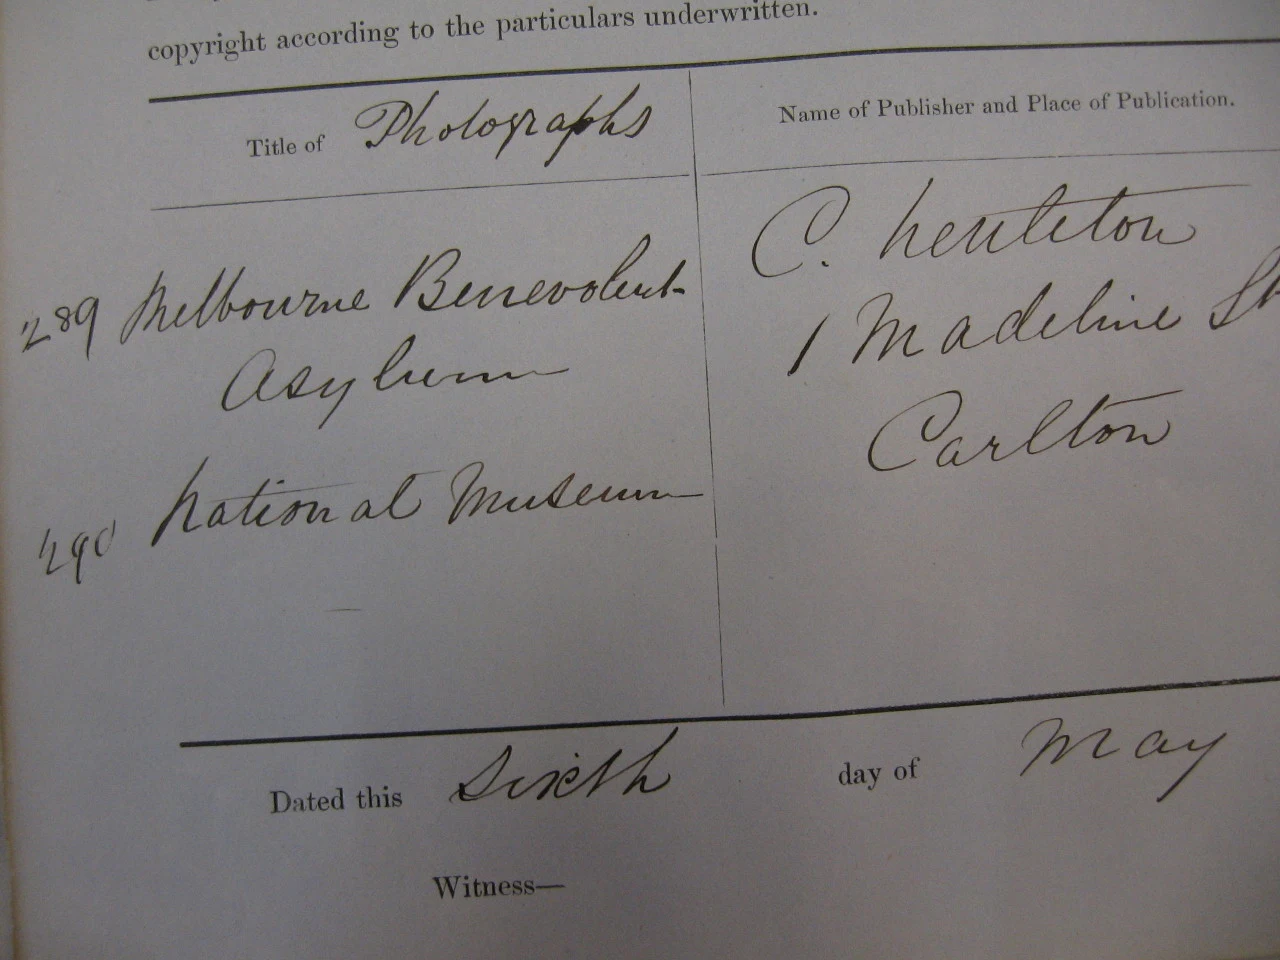 copyright according to the particulars underwritten.
Title of Photographs
Name of Publisher and Place of Publication.
289 Melbourne Benevolent
Asylum
290 National Museum
C. Nettleton
1 Madeline St
Carlton
Dated this Sixth day of May
Witness—